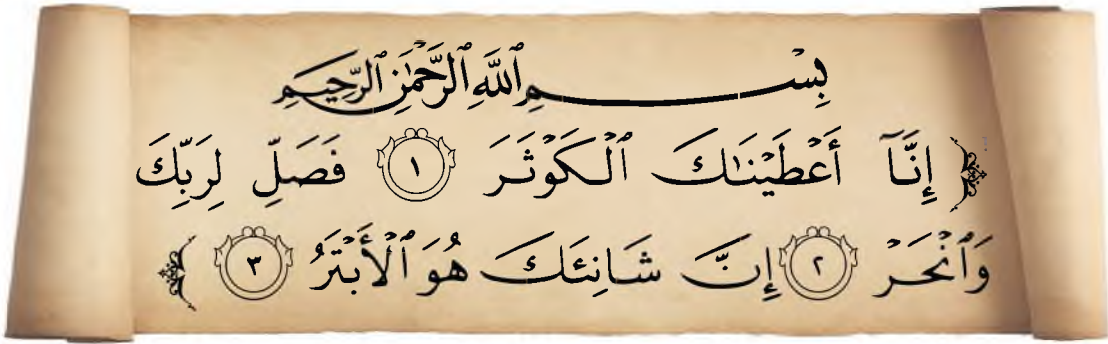 بِسْمِ ٱللَّهِ ٱلرَّحْمَٰنِ ٱلرَّحِيمِ
﴿ إِنَّآ أَعْطَيْنَٰكَ ٱلْكَوْثَرَ ١ فَصَلِّ لِرَبِّكَ
وَٱنْحَرْ ٢ إِنَّ شَانِئَكَ هُوَ ٱلْأَبْتَرُ ٣ ﴾